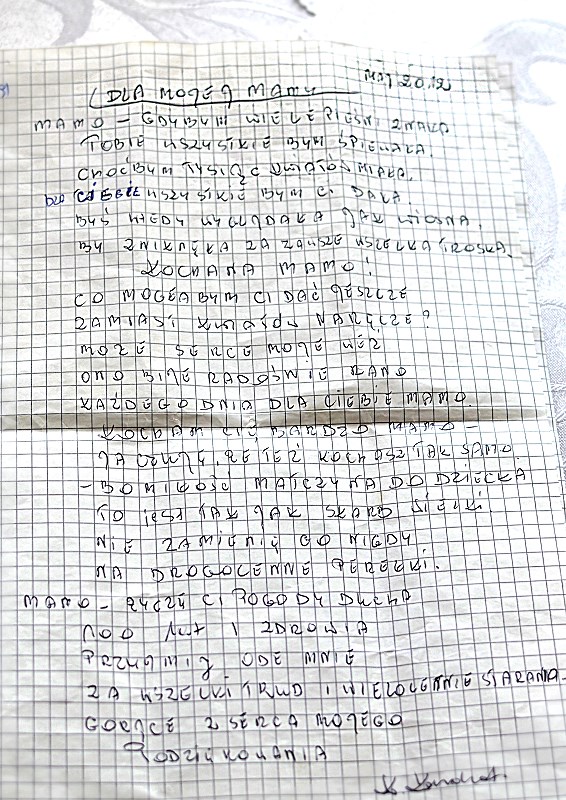 DLA MOJEJ MAMY MAJ 2012
MAMO - GDYBYM WIELE PIEŚNI ZNAŁA
TOBIE WSZYSTKIE BYM ŚPIEWAŁA.
CHOĆBYM TYSIĄC KWIATÓW MIAŁA,
CIEBIE WSZYSTKIE BYM CI DAŁA.
BYŚ WTEDY WYGLĄDAŁA JAK WIOSNA,
BY ZNIKNĘŁA ZA ZAWSZE WSZELKA TROSKA.
KOCHANA MAMO!
CO MOGŁABYM CI DAĆ JESZCZE
ZAMIAST KWIATÓW NARĘCZE?
MOŻE SERCE MOJE WEŹ
ONO BIJE RADOŚNIE RANO
KAŻDEGO DNIA DLA CIEBIE MAMO.
KOCHAM CIĘ BARDZO MAMO -
JA CZUJĘ, ŻE TEŻ KOCHASZ TAK SAMO.
- BO MIŁOŚĆ MATCZYNA DO DZIECKA
TO JEST TAK JAK SKARB WIELKI
NIE ZAMIENIĘ GO NIGDY
NA DROGOCENNE PEREŁKI.
MAMO - ŻYCZĘ CI POGODY DUCHA
100 LAT I ZDROWIA
PRZYJMIJ ODE MNIE
ZA WSZELKI TRUD I WIELOLETNIE STARANIA -
GORĄCE Z SERCA MOJEGO
PODZIĘKOWANIA